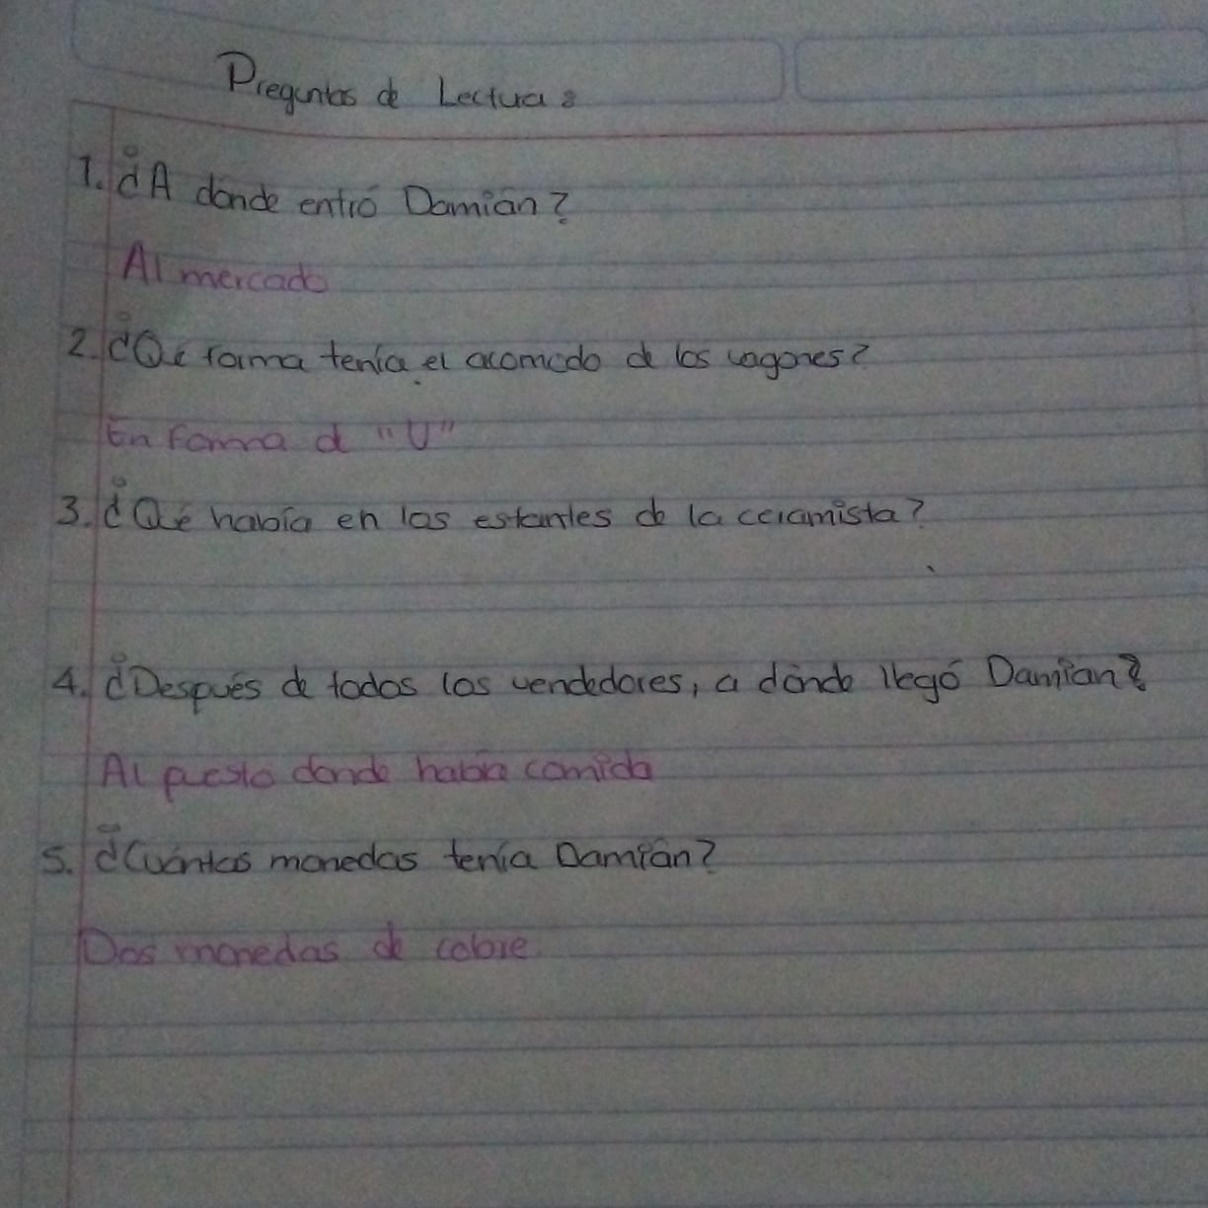 Preguntas de Lectura:
1. ¿A dónde entró Damián?
Al mercado
2. ¿Qué forma tenía el acomodo de los vagones?
En forma d "U"
3. ¿Qué había en los estantes de la ceramista?
4. ¿Después de todos los vendedores, a dónde llegó Damián?
Al puesto donde había comida
5. ¿Cuántas monedas tenía Damián?
Dos monedas de cobre